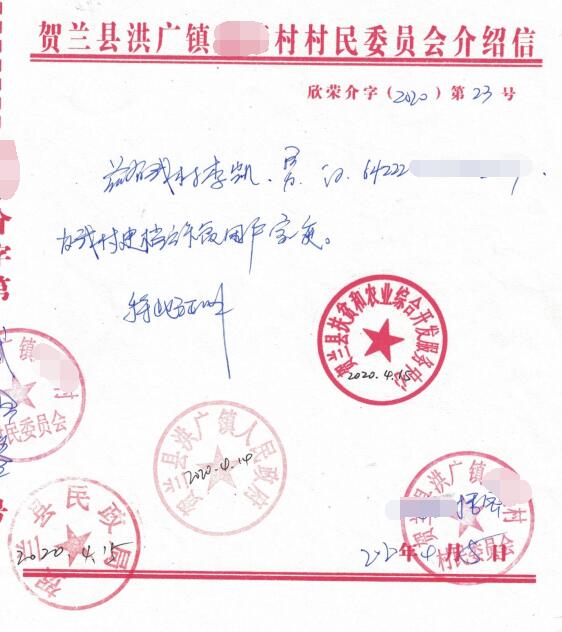 贺兰县洪广镇 村村民委员会介绍信
欣荣介字(2020)第23号
兹有我村李凯、男、汉、64222
为我村建档立卡贫困户家庭。
特此证明
贺兰县扶贫和农业综合开发服务中心
2020.4.15
介字第
洪广镇 村
村民委员会
贺兰县洪广镇人民政府
2020.4.14
贺兰县民政局
2020.4.15
贺兰县洪广镇 村
村民委员会
2020年4月 日
号